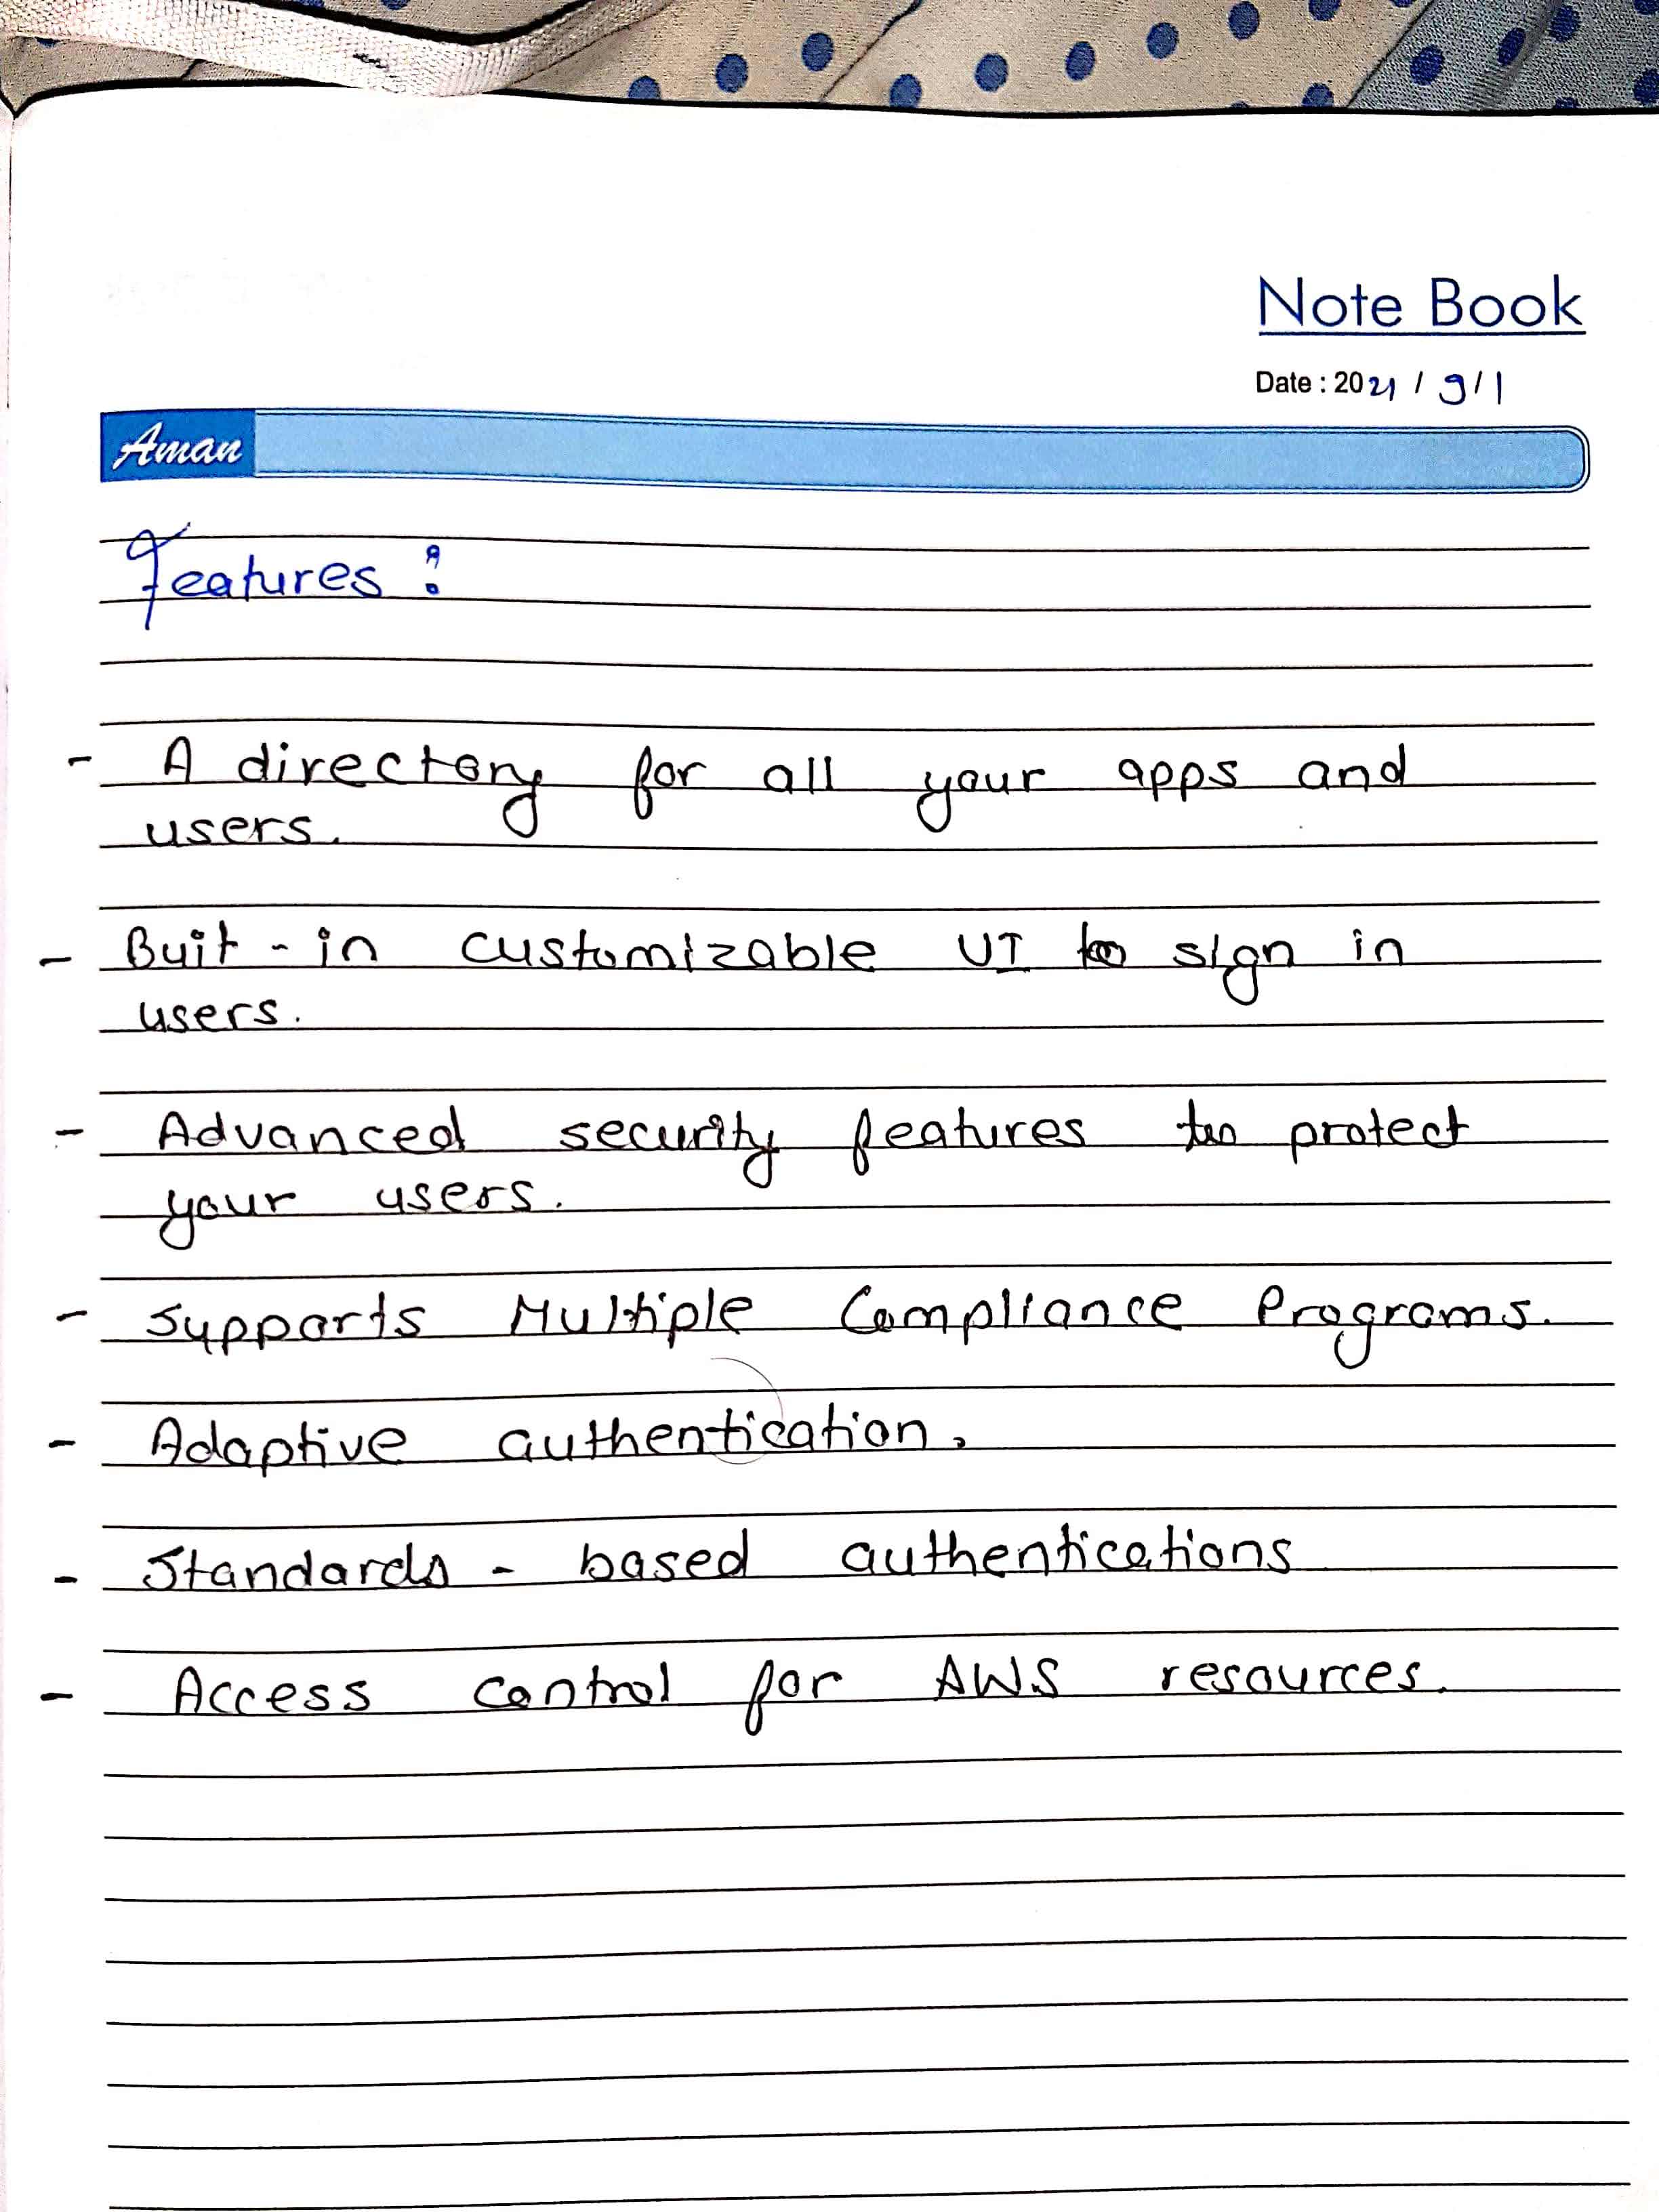 Note Book
Date : 2021 / 9 / 1
Aman
Features :
- A directory for all your apps and
users.
- Buit - in customizable UI to sign in
users.
- Advanced security features to protect
your users.
- Supports Multiple Compliance Programs.
- Adaptive authentication.
- Standards - based authentications
- Access control for AWS resources.